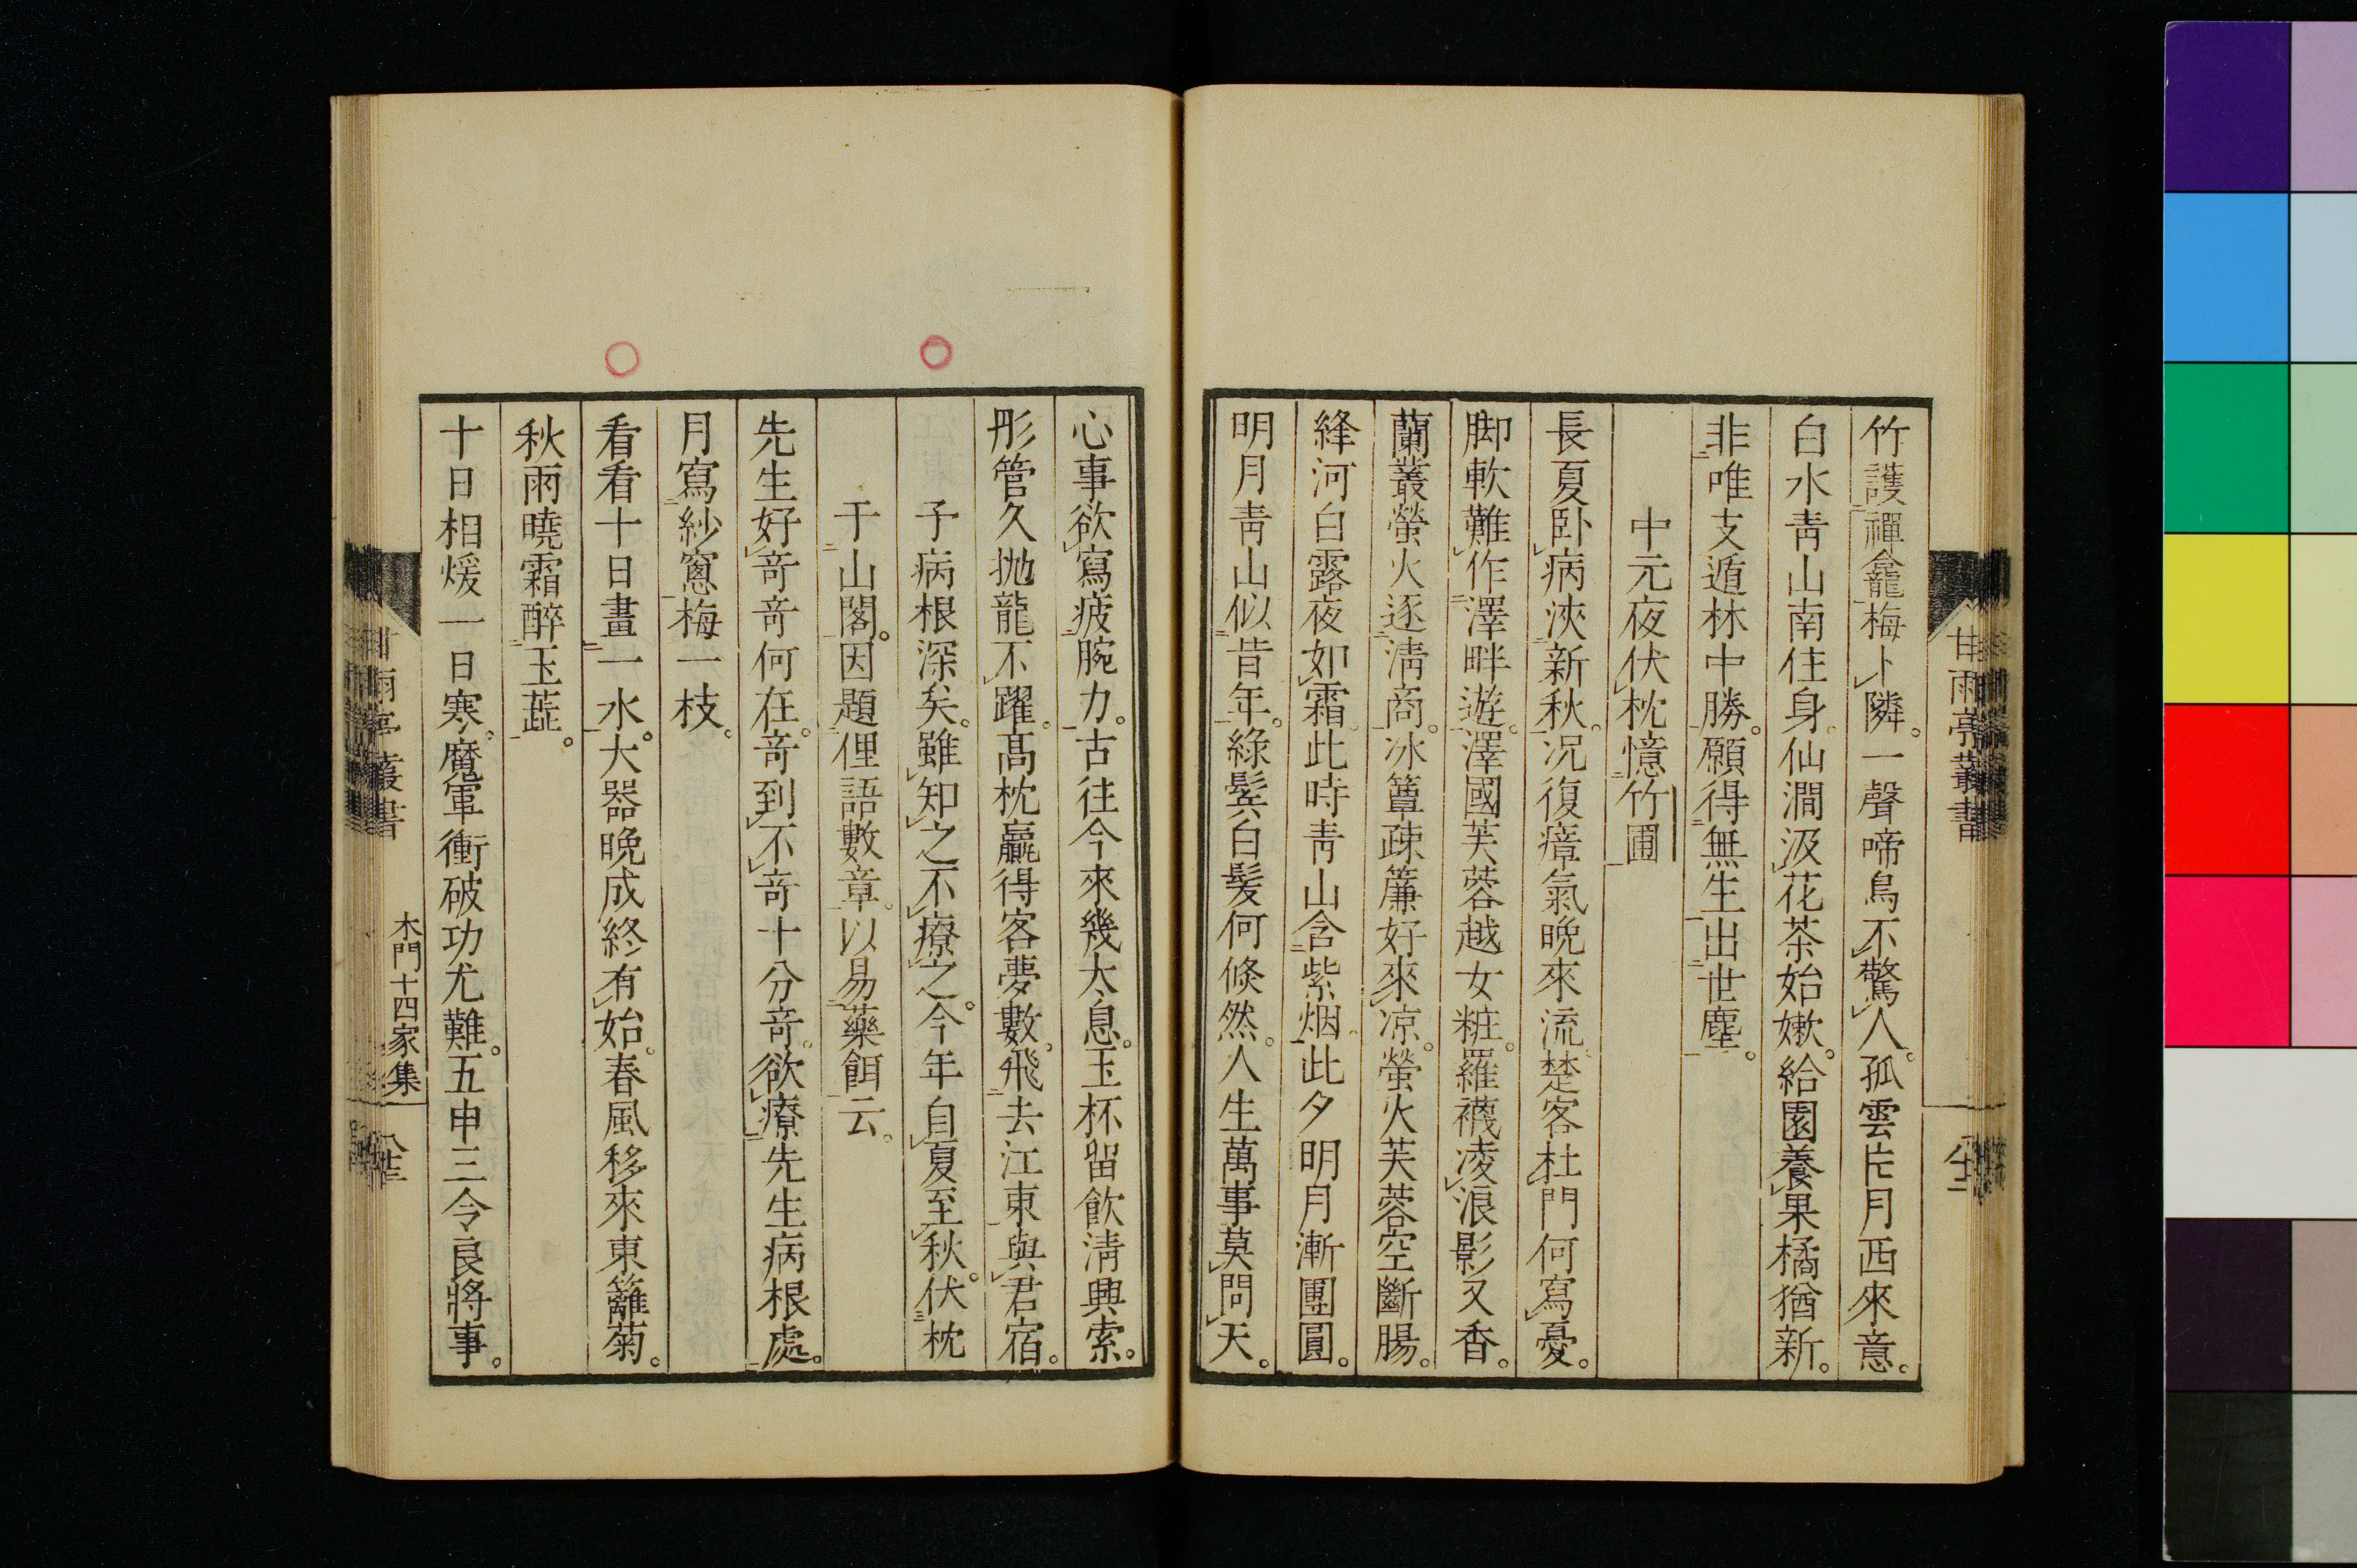 竹護禪龕梅卜隣。一聲啼鳥不驚人。孤雲片月西來意。
白水靑山南住身。仙澗汲花茶始嫩。給園養果橘猶新。
非唯支遁林中勝。願得無生出世塵。
中元夜伏枕憶竹圃
長夏臥病浹新秋。况復瘴氣晚來流。楚客杜門何寫憂。
脚軟難作澤畔遊。澤國芙蓉越女粧。羅襪凌浪影又香。
蘭叢螢火逐淸商。冰簟疎簾好來凉。螢火芙蓉空斷腸。
絳河白露夜如霜。此時靑山含紫烟。此夕明月漸團圓。
明月靑山似昔年。綠鬂白髮何倏然。人生萬事莫問天。
甘雨亭叢書
心事欲寫疲腕力。古往今來幾太息。玉杯留飮淸興索。
彤管久抛龍不躍。高枕贏得客夢數。飛去江東與君宿。
予病根深矣。雖知之不療之。今年自夏至秋。伏枕
于山閣。因題俚語數章。以易藥餌云。
先生好竒竒何在。竒到不竒十分竒。欲療先生病根處。
月寫紗窻梅一枝。
看看十日畫一水。大器晚成終有始。春風移來東籬菊。
秋雨曉霜醉玉蘂。
十日相煖一日寒。魔軍衝破功尤難。五申三令良將事。
甘雨亭叢書
木門十四家集